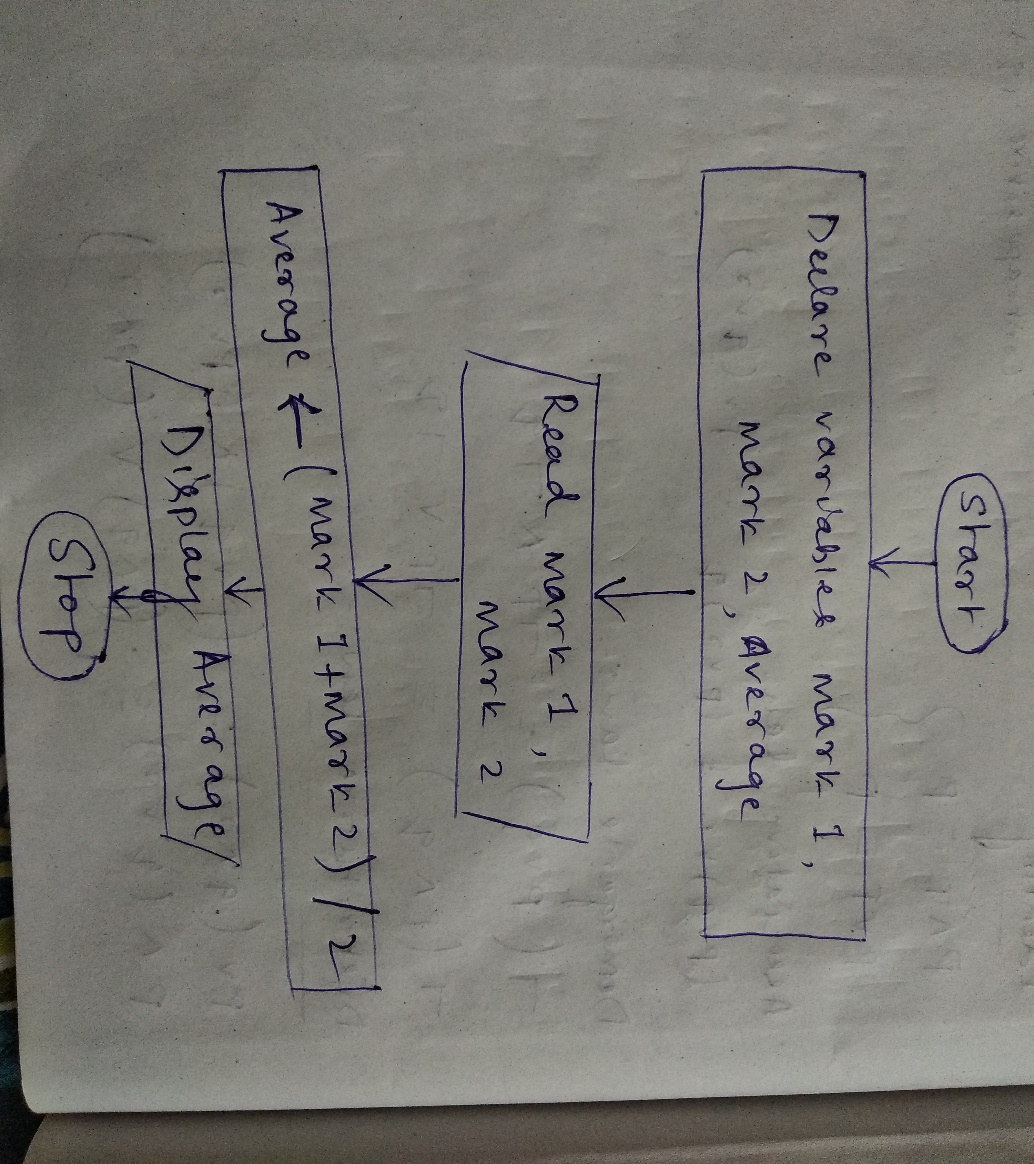 Start
Declare variables mark 1,
mark 2, Average
Read mark 1,
mark 2
Average ← (mark 1+mark 2) / 2
Display Average
Stop